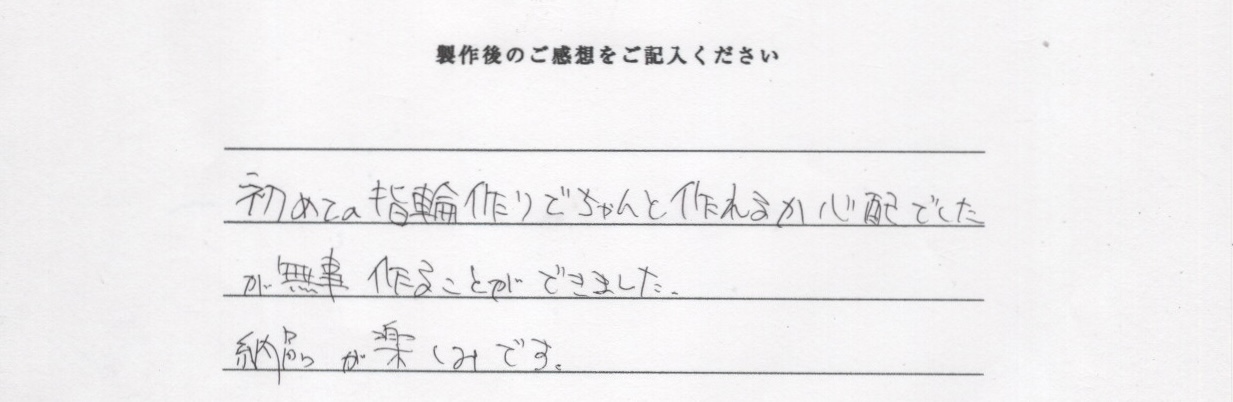 製作後のご感想をご記入ください
初めての指輪作りでちゃんと作れるか心配でした
が無事作ることができました。
納品が楽しみです。